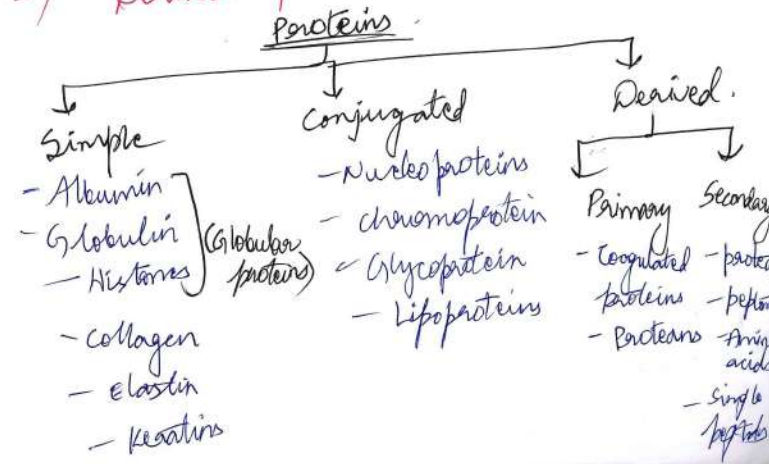 Proteins.
Simple
- Albumin
- Globulin
- Histones
(Globular proteins)
- Collagen
- Elastin
- Keratins
Conjugated
- Nucleoproteins
- chromoprotein
- Glycoprotein
- Lipoproteins
Derived.
Primary
- Coagulated
proteins
- Proteans
Secondary
- Amin
acids
- Single
peptides